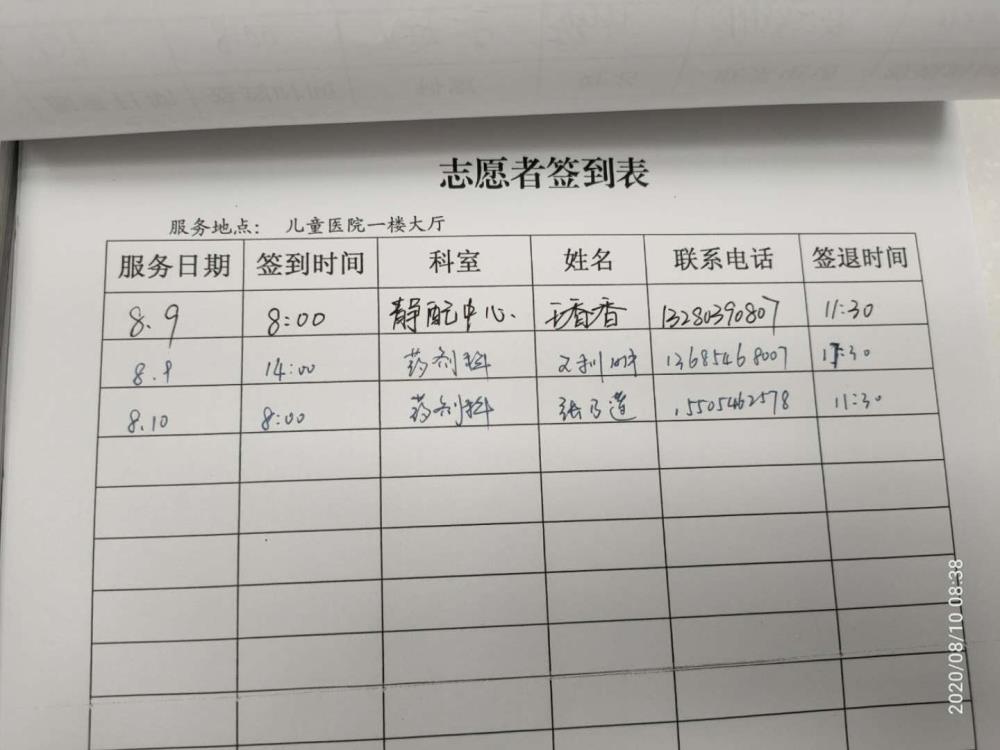 志愿者签到表
服务地点： 儿童医院一楼大厅
服务日期 签到时间 科室 姓名 联系电话 签退时间
8.9 8:00 静配中心. 王香香 13280390807 11:30
8.9 14:00 药剂科 13685468007 17:30
8.10 8:00 药剂科 15505462578 11:30
2020/08/10 08:38